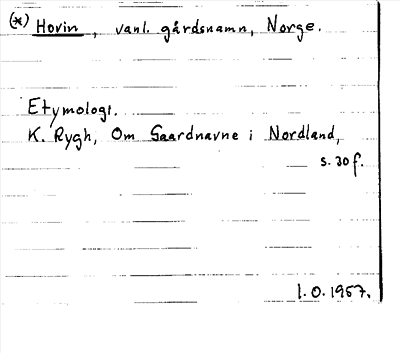 (*) Hovin, vanl. gårdsnamn, Norge.
Etymologi.
K. Rygh, Om Gaardnavne i Nordland,
s. 30 f.
I. O. 1957.